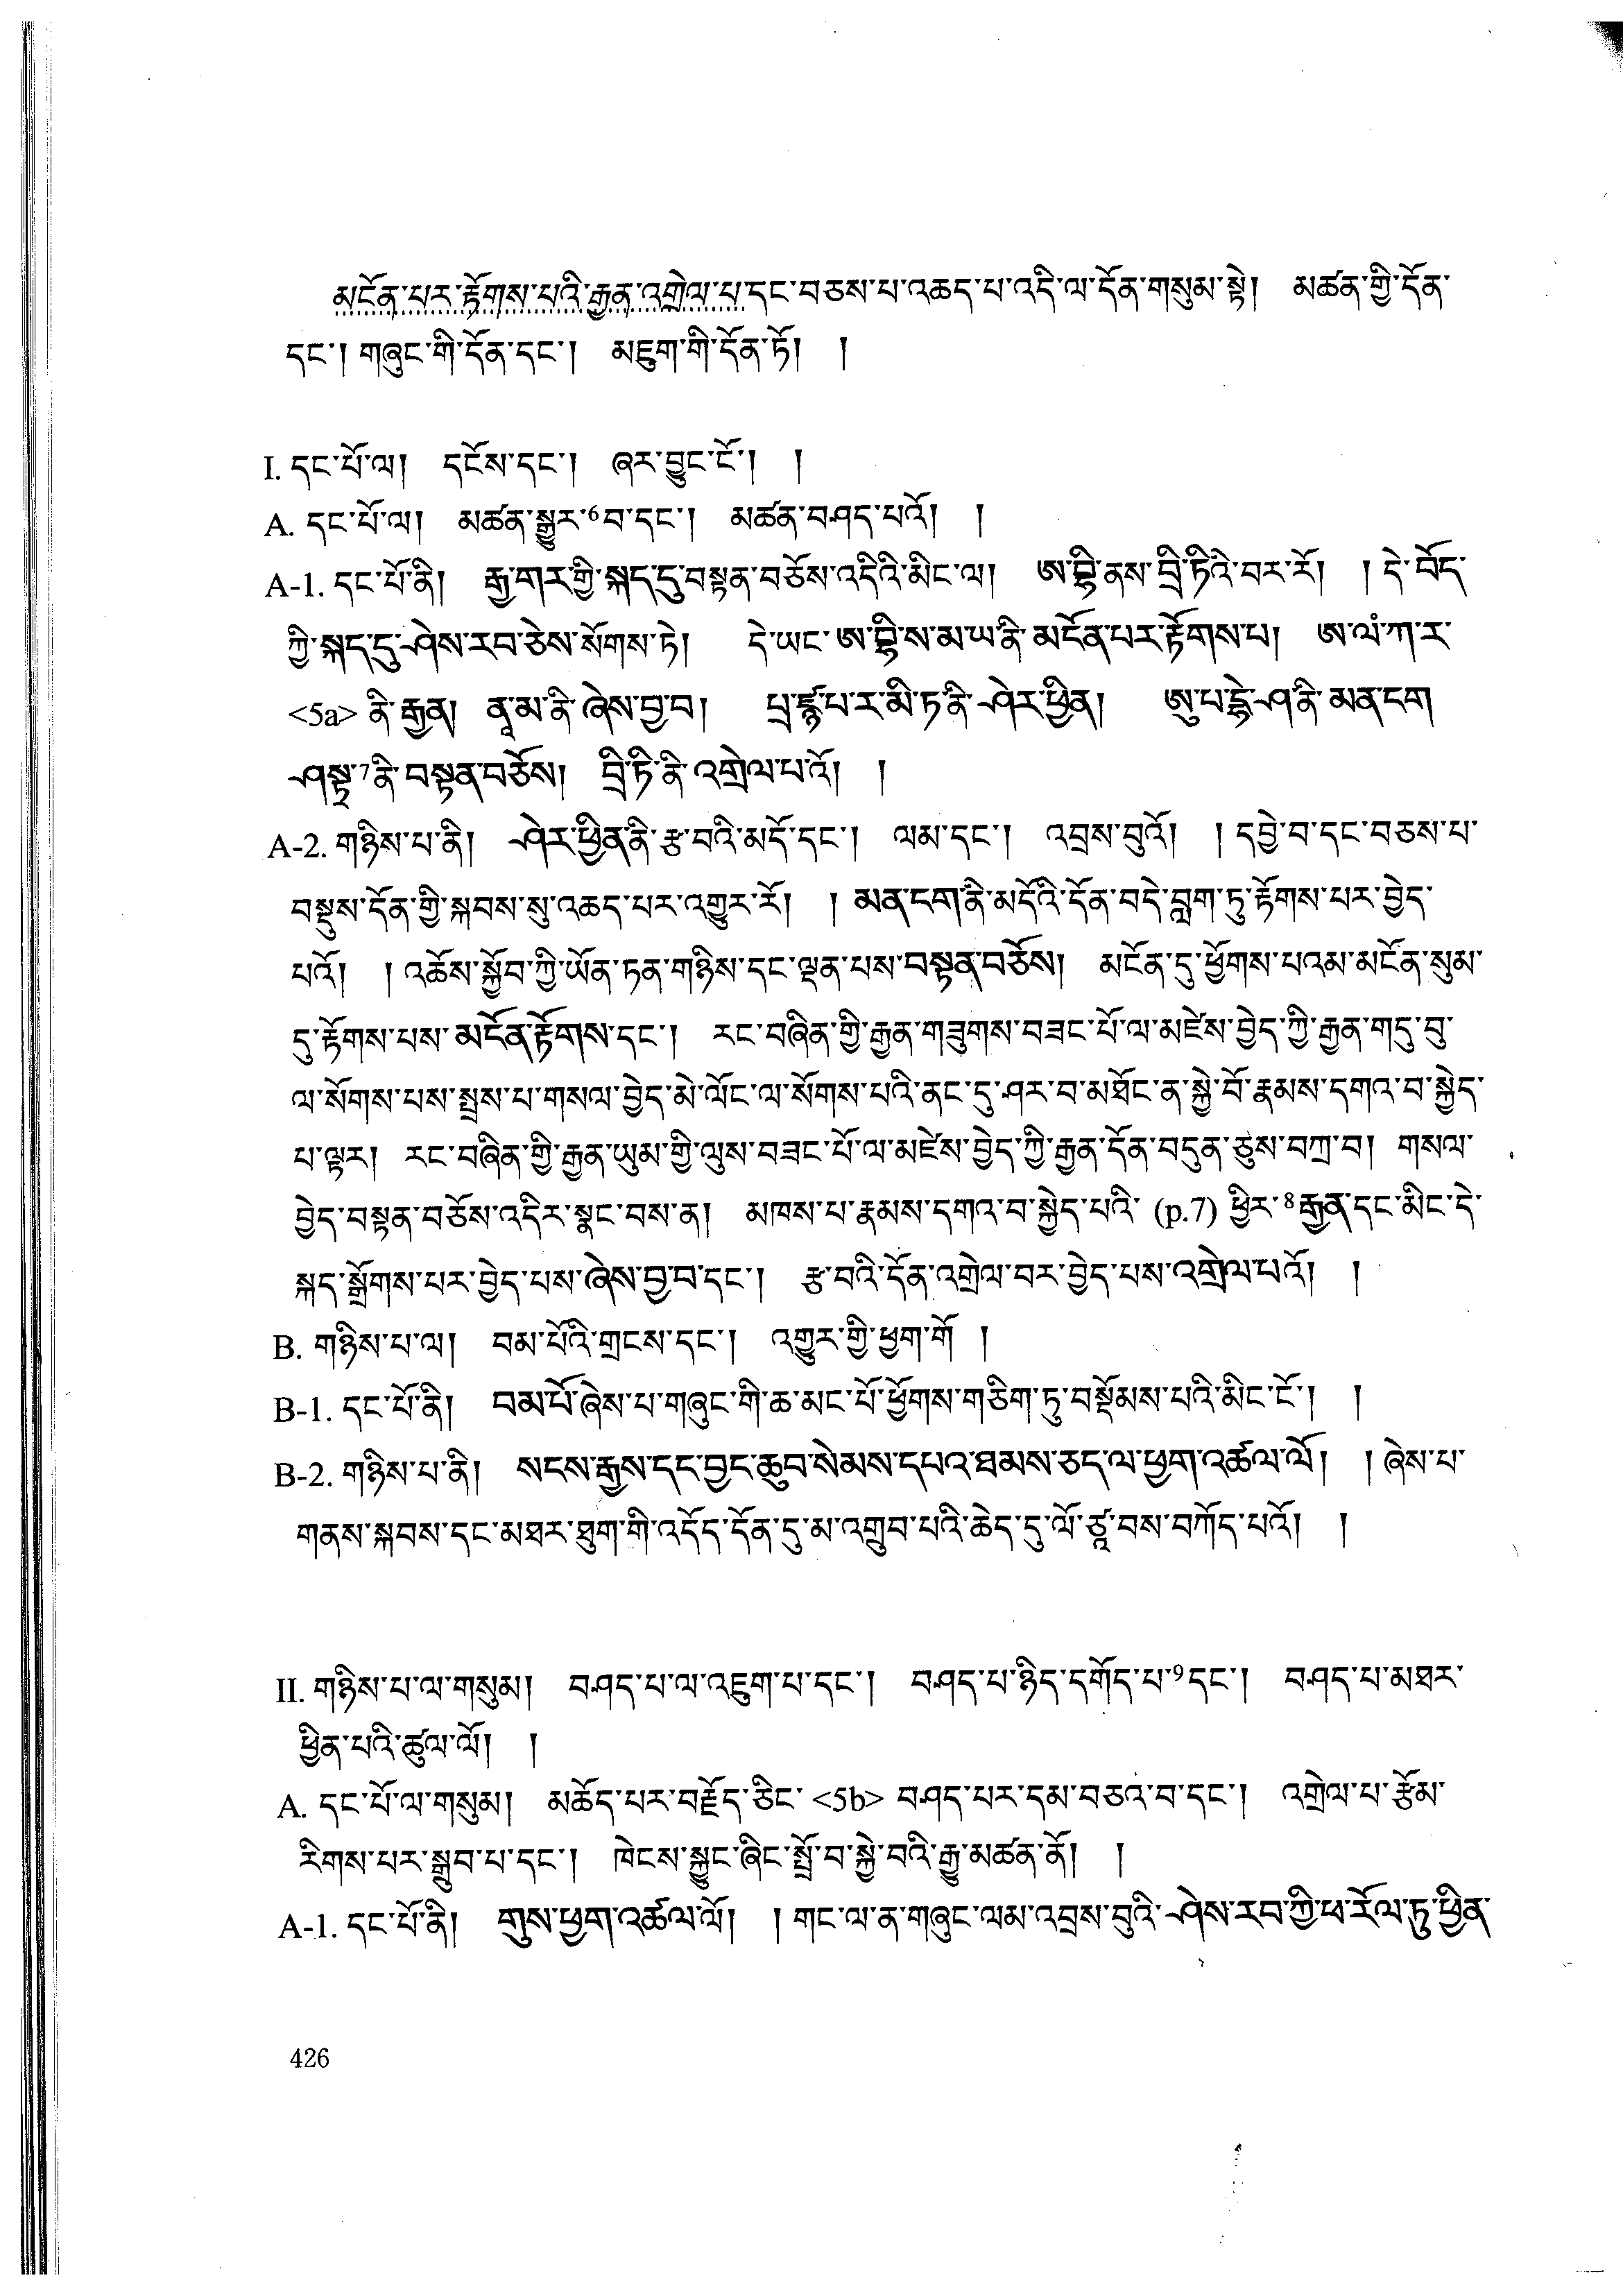 མངོན་པར་རྟོགས་པའི་རྒྱན་འགྲེལ་པ་དང་བཅས་པ་འཆད་པ་འདི་ལ་དོན་གསུམ་སྟེ། མཚན་གྱི་དོན་
དང་། གཞུང་གི་དོན་དང་། མཇུག་གི་དོན་ཏོ། །
I. དང་པོ་ལ། དངོས་དང་། ཞར་བྱུང་ངོ་། །
A. དང་པོ་ལ། མཚན་སྒྱུར་6བ་དང་། མཚན་བཤད་པའོ། །
A-1. དང་པོ་ནི། རྒྱ་གར་གྱི་སྐད་དུ་བསྟན་བཅོས་འདིའི་མིང་ལ། ཨ་བྷི་ནས་བྲྀ་ཏིའི་བར་རོ། །དེ་བོད་
ཀྱི་སྐད་དུ་ཤེས་རབ་ཅེས་སོགས་ཏེ། དེ་ཡང་ཨ་བྷི་ས་མ་ཡ་ནི་མངོན་པར་རྟོགས་པ། ཨ་ལཾ་ཀ་ར་
<5a> ནི་རྒྱན། ནཱ་མ་ནི་ཞེས་བྱ་བ། པྲ་ཛྙཱ་པ་ར་མི་ཏ་ནི་ཤེར་ཕྱིན། ཨུ་པ་དྷེ་ཤ་ནི་མན་ངག
ཤསྟྲ་7ནི་བསྟན་བཅོས། བྲྀ་ཏི་ནི་འགྲེལ་པའོ། །
A-2. གཉིས་པ་ནི། ཤེར་ཕྱིན་ནི་རྩ་བའི་མདོ་དང་། ལམ་དང་། འབྲས་བུའོ། །དབྱེ་བ་དང་བཅས་པ་
བསྡུས་དོན་གྱི་སྐབས་སུ་འཆད་པར་འགྱུར་རོ། །མན་ངག་ནི་མདོའི་དོན་བདེ་བླག་ཏུ་རྟོགས་པར་བྱེད་
པའོ། །འཆོས་སྐྱོབ་ཀྱི་ཡོན་ཏན་གཉིས་དང་ལྡན་པས་བསྟན་བཅོས། མངོན་དུ་ཕྱོགས་པའམ་མངོན་སུམ་
དུ་རྟོགས་པས་མངོན་རྟོགས་དང་། རང་བཞིན་གྱི་རྒྱན་གཟུགས་བཟང་པོ་ལ་མཛེས་བྱེད་ཀྱི་རྒྱན་གདུ་བུ་
ལ་སོགས་པས་སྤྲས་པ་གསལ་བྱེད་མེ་ལོང་ལ་སོགས་པའི་ནང་དུ་ཤར་བ་མཐོང་ན་སྐྱེ་བོ་རྣམས་དགའ་བ་སྐྱེད་
པ་ལྟར། རང་བཞིན་གྱི་རྒྱན་ཡུམ་གྱི་ལུས་བཟང་པོ་ལ་མཛེས་བྱེད་ཀྱི་རྒྱན་དོན་བདུན་ཅུས་བཀྲ་བ། གསལ་
བྱེད་བསྟན་བཅོས་འདིར་སྣང་བས་ན། མཁས་པ་རྣམས་དགའ་བ་སྐྱེད་པའི་ (p.7) ཕྱིར་8རྒྱན་དང་མིང་དེ་
སྐད་སྒྲོགས་པར་བྱེད་པས་ཞེས་བྱ་བ་དང་། རྩ་བའི་དོན་འགྲེལ་བར་བྱེད་པས་འགྲེལ་པའོ། །
B. གཉིས་པ་ལ། བམ་པོའི་གྲངས་དང་། འགྱུར་གྱི་ཕྱག་གོ །
B-1. དང་པོ་ནི། བམ་པོ་ཞེས་པ་གཞུང་གི་ཆ་མང་པོ་ཕྱོགས་གཅིག་ཏུ་བསྡོམས་པའི་མིང་ངོ་། །
B-2. གཉིས་པ་ནི། སངས་རྒྱས་དང་བྱང་ཆུབ་སེམས་དཔའ་ཐམས་ཅད་ལ་ཕྱག་འཚལ་ལོ། །ཞེས་པ་
གནས་སྐབས་དང་མཐར་ཐུག་གི་འདོད་དོན་དུ་མ་འགྲུབ་པའི་ཆེད་དུ་ལོ་ཙཱ་བས་བཀོད་པའོ། །
II. གཉིས་པ་ལ་གསུམ། བཤད་པ་ལ་འཇུག་པ་དང་། བཤད་པ་ཉིད་དགོད་པ་9དང་། བཤད་པ་མཐར་
ཕྱིན་པའི་ཚུལ་ལོ། །
A. དང་པོ་ལ་གསུམ། མཆོད་པར་བརྗོད་ཅིང་ <5b> བཤད་པར་དམ་བཅའ་བ་དང་། འགྲེལ་པ་རྩོམ་
རིགས་པར་སྒྲུབ་པ་དང་། ཁེངས་སྐྱུང་ཞིང་སྤྲོ་བ་སྐྱེ་བའི་རྒྱུ་མཚན་ནོ། །
A-1. དང་པོ་ནི། གུས་ཕྱག་འཚལ་ལོ། །གང་ལ་ན་གཞུང་ལམ་འབྲས་བུའི་ཤེས་རབ་ཀྱི་ཕ་རོལ་ཏུ་ཕྱིན་
426